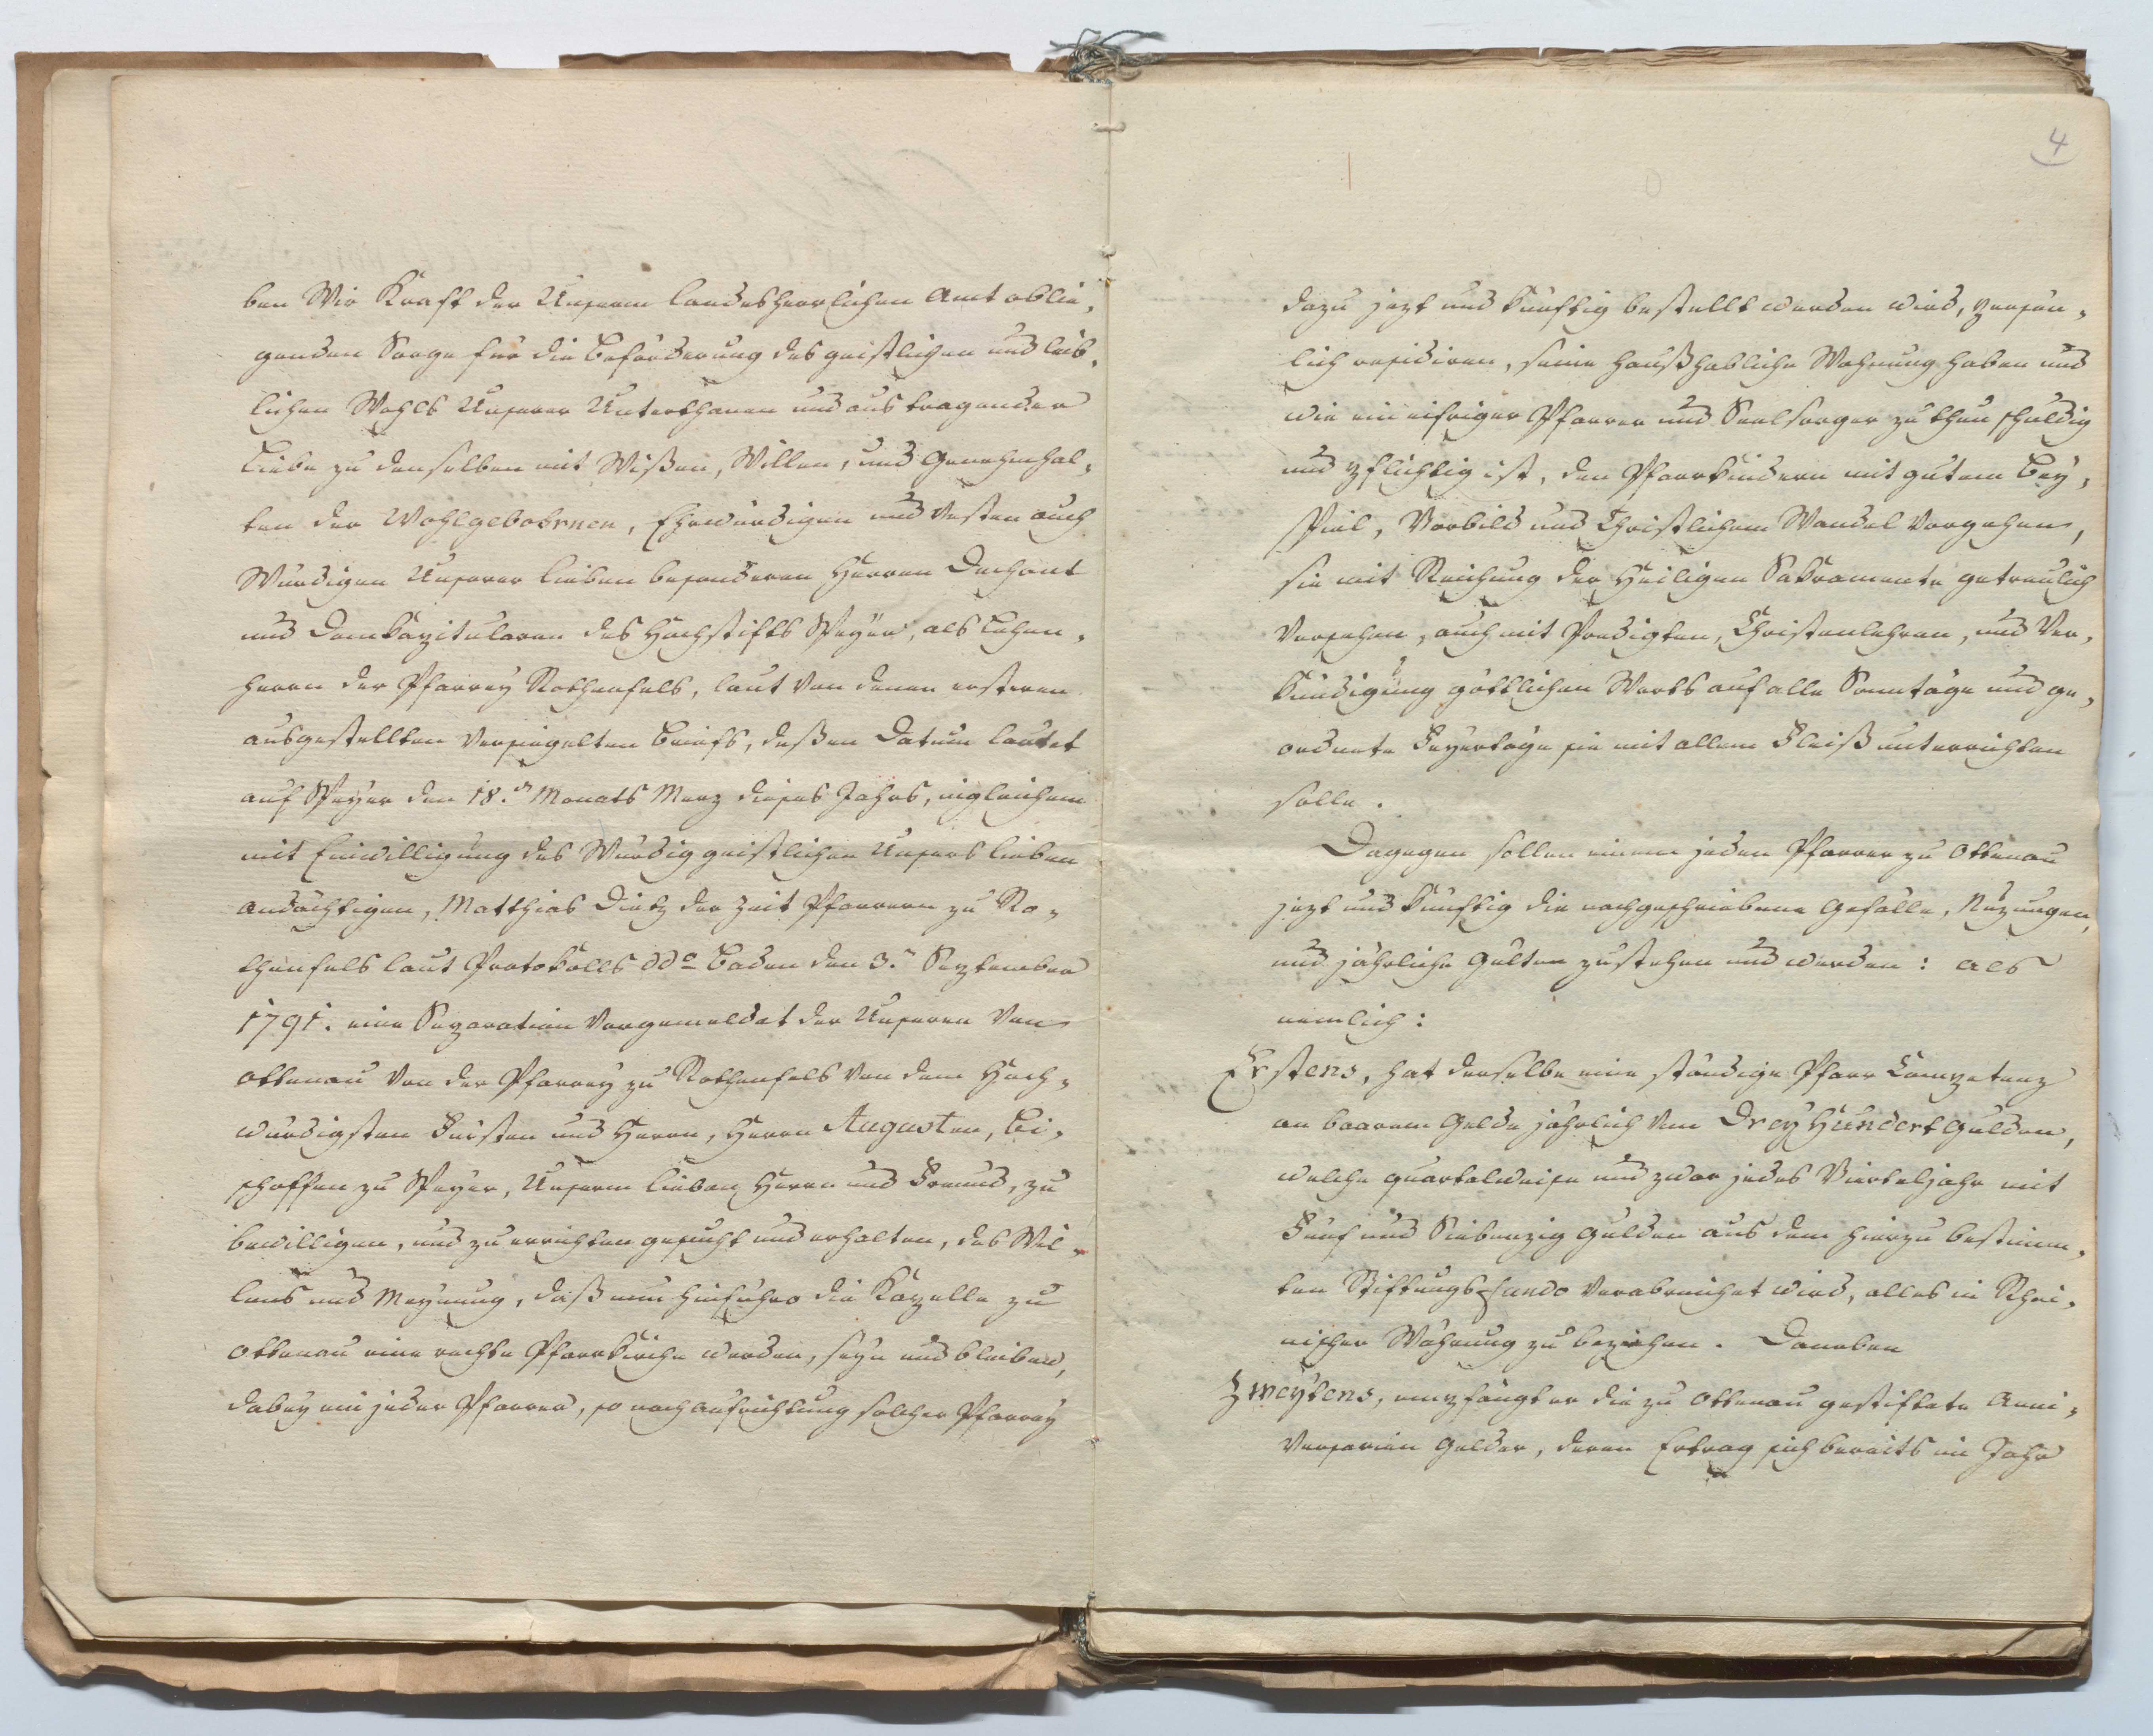 ben Wir Kraft der Unserem landesherrlichen Amt oblie,
genden Sorge für die Beförderung des geistlichen und leib,
lichen Wohls Unserer Unterthanen und aus tragender
Liebe zu denselben mit Wißen, Willen, und Genehmhal,
ten der Wohlgebohrnen, Ehrwürdigen und Vesten auch
Würdigen Unserer lieben besonderen Herren Dechant
und Domkapitularen des Hochstifts Speyer, als Lehen,
herrn der Pfarrey Rothenfels, laut von denen ersteren
ausgestellten versiegelten Briefs, deßen Datum lautet
auf Speyer den 18.ten Monats Merz dieses Jahrs, ingleichem
mit Einwilligung des Würdig geistlichen Unsers lieben
andächtigen, Matthias Dietz der Zeit Pfarrern zu Ro,
thenfels laut Protokolls ddo Baden den 3.n September
1791. eine Separation vorgemeldet der Unseren von
Ottenau von der Pfarrey zu Rothenfels von dem Hoch,
würdigsten Fürsten und Herrn, Herrn Augusten, Bi,
schoffen zu Speyer, Unserem lieben Herrn und Freund, zu
bewilligen, und zu errichten gesucht und erhalten, des Wil,
lens und Meynung, daß nun hinführo die Kapelle zu
Ottenau eine rechte Pfarrkirche werden, seyn und bleiben,
dabey ein jeder Pfarrer, so nach aufrichtung solcher Pfarrey
4
dazu jezt und künftig bestellt werden wird, persön,
lich residiren, seine haußhabliche Wohnung haben und
wie ein eifriger Pfarrer und Seelsorger zu thun schuldig
und pflichtig ist, den Pfarrkindern mit gutem Bey,
spiel, Vorbild und Christlichem Wandel vorgehen,
sie mit Reichung der Heiligen Sakramente getreulich
versehen, auch mit Predigten, Christenlehren, und Ver,
kündigung göttlichen Worts auf alle Sonntäge und ge,
ordnete Feyertäge sie mit allem Fleiß unterrichten
solle.
Dagegen sollen einem jeden Pfarrer zu Ottenau
jezt und künftig die nachgeschriebene Gefälle, Nuzungen,
und jährliche Gülten zustehen und werden: als
nemlich:
Erstens, hat derselbe eine ständige Pfarr Competenz
an baarem Gelde jährlich von Drey Hundert Gulden,
welche quartalweise und zwar jedes Vierteljahr mit
Fünf und Siebenzig Gulden aus dem hierzu bestimm,
ten Stiftungs-fundo verabreichet wird, alles in Rhei,
nischer Währung zu beziehen. Daneben
Zweytens, empfängt er die zu Ottenau gestiftete Anni,
versarien Gelder, deren Ertrag sich bereits im Jahr